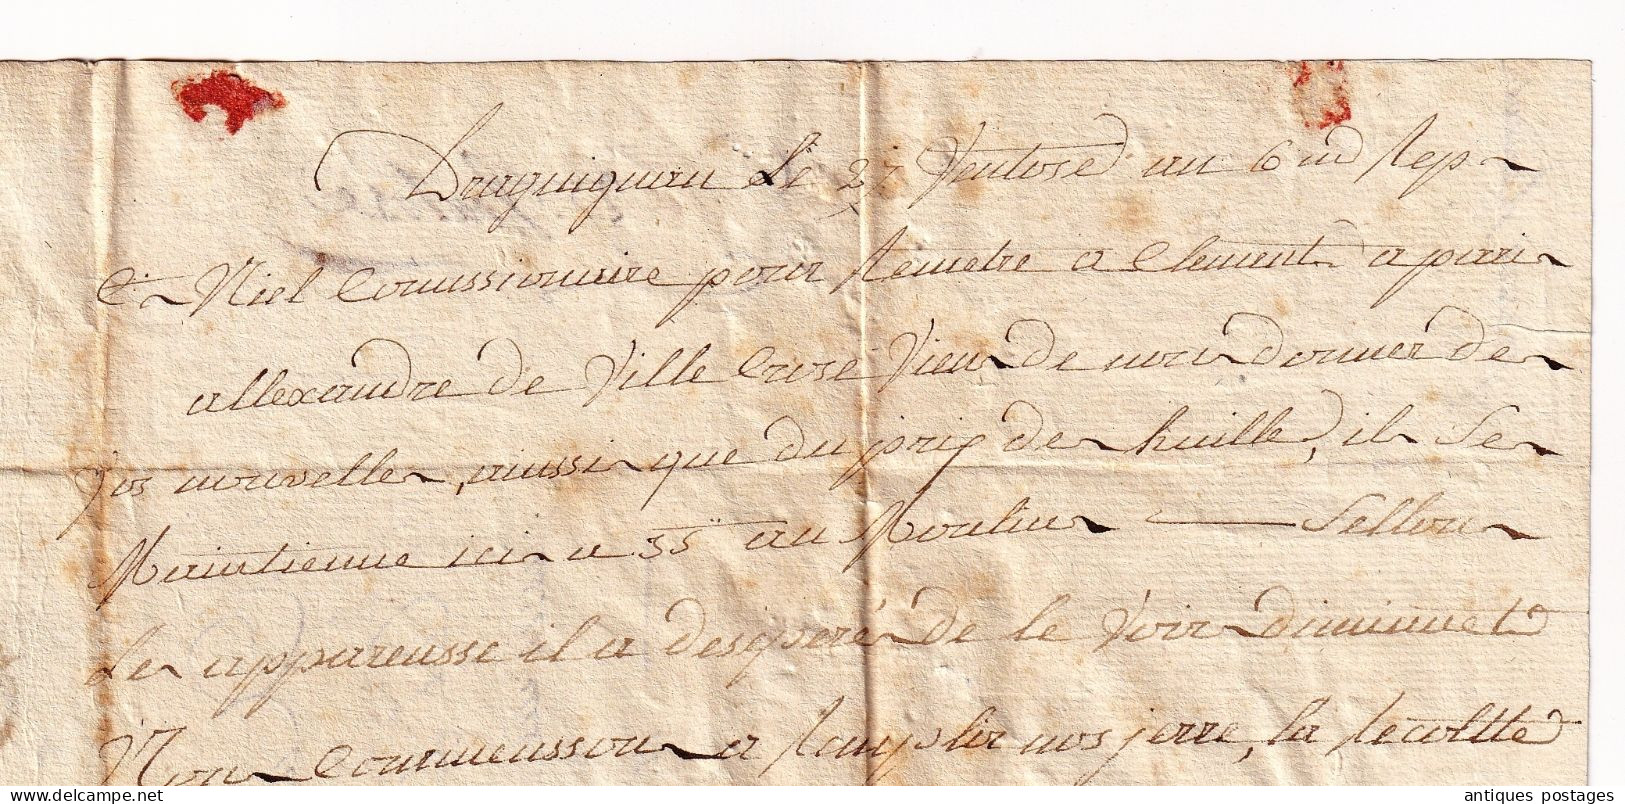 Draguignan le 27 Ventose an 6 me Rep
C Niel Comissionaire pour Remetre a Clement a pari
allexandre de Ville Crose Vien de nou donner de
vos nouvelle, aussi que du prix de huille, il se
Maintienne ici a 55 au Moulin — Sellon
le apparensse il a desperé de le voir diminuet
Nou Commensson a Remplir nos jarre, la Recoltte
antiques postages